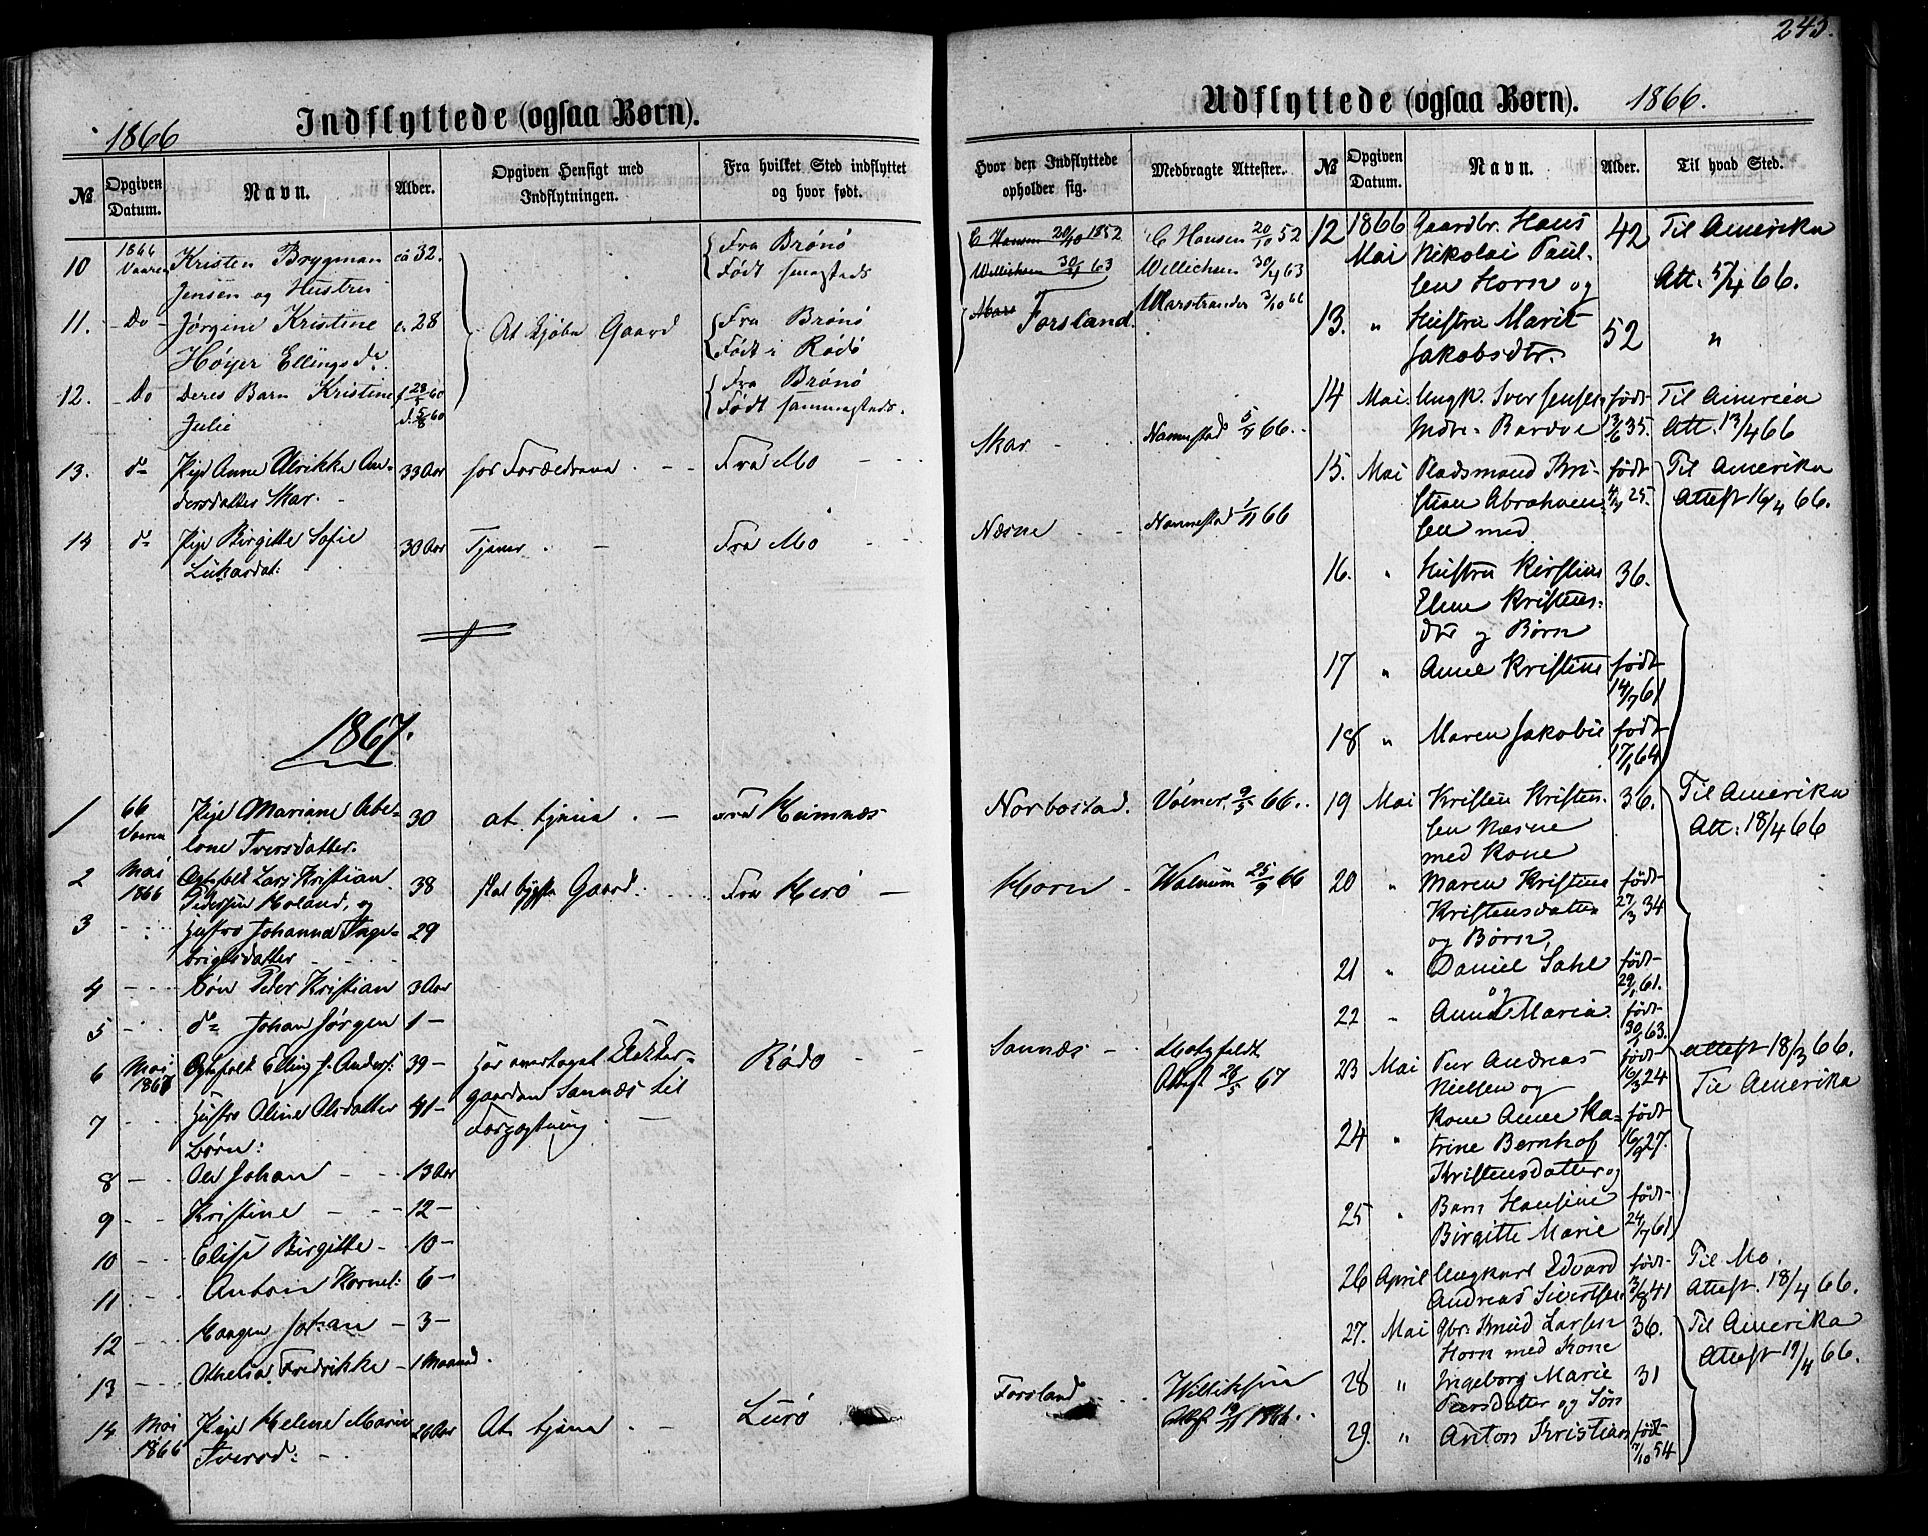 243.
1866
Indflyttede (ogsaa Børn).
№
Opgiven Datum.
Navn.
Alder.
Opgiven Hensigt med Indflytningen.
Fra hvilket Sted indflyttet og hvor født.
10 1866 Vaaren Kristen Brygman ca 32. Fra Brønø
Jensen og Hustru Født sammesteds
11. Do Jørgine Kristine c. 28 At kjøbe Gaard Fra Brønø
Høyer Ellingsdr. Født i Rødø
12. Do Deres Barn Kristine Fra Brønø
Julie Født sammesteds.
13. do Pige Anne Ulrikke An- 33 Aar hos Forældrene Fra Mo
dersdatter Skar.
14 do Pige Birgitte Sofie 30 Aar Tjener Fra Mo
Lukasdat:
1867.
1 66 Vaaren Pige Mariane Abe- 30 at tjene Fra Hemnæs
lone Iversdatter.
2 Mai 1866 Ægtefolk Lars Kristian 38 skal bygsle Gaard. Fra Herø
Pedersen Moland, og
3 Hustro Johanna Inge- 29
brigtsdatter
4 Søn Peder Kristian 3 Aar
5 do Johan Jørgen 1
6 Mai 1867 Ægtefolk Elling J. Anders: 39 Har overtaget Klokker- Rødø
7 Hustro Oline Olsdatter 41 gaarden Sannæs til
Børn: Forpagtning
8 Ole Johan 13 Aar
9 Kristine 12
10 Elise Birgitte 10
11 Anton Kornel: 6
12 Haagen Johan 3
13 Fredrikke 1 Maaned.
14 Mai 1866 Pige Helene Marie 26 Aar At tjene Lurø
Iversd:
Udflyttede (ogsaa Børn).
1866.
Hvor den Indflyttede opholder sig.
Medbragte Attester.
№
Opgiven Datum.
Navn.
Alder.
Til hvad Sted.
C Hansen 20/10 1852 C Hansen 20/10 52 12 1866 Gaardbr. Hans 42 Til Amerika
Willichsen 30/4 63 Willichsen 30/4 63 Mai Nikolai Paul-
sen Horn og Att. 5/4 66.
Forsland. Marstrander 3/10 66 13. " Hustru Marit 52 "
Jakobsdtr.
14 Mai. Ungk. Iver Jensen født Til Amerika
Skar Nannestad 5/5 66. Indre Bardø 13/6 35. Att. 13/4 66
15. Mai Pladsmand Kri- født Til Amerika
Næsne Nannestad 1/11 66 stian Abraham- 25. Attest 16/4 66.
sen med
16. " Hustru Kirstine 36.
Elene Kristens-
dtr og Børn
17 " Anne Kristine født 14/7 61
18 " Maren Jakobie født 17/1 64
Norbostad. Volner 9/5 66. 19 Mai Kristen Kristen- 36. Til Amerika
sen Næsne Att: 18/4 66
med Kone
Horn Walnum 25/9 66 20 " Maren Kristine født 27/3 34
Kristensdatter
og Børn,
21 " Daniel Sahl født 29/1 61.
og
22 " Anna Maria. født 30/ 63.
Sannæs Motzfeldt 23 Mai Peer Andreas født Attest 18/3 66.
Attest 28/5 67 Nielsen og 16/3 24 Til Amerika
24 " Kone Anne Ka- født
trine Bernhof 16/9 27.
Kristensdatter og
25 " Barn Hansine født
Birgitte Marie 24/7 61
26 April Ungkarl Edvard født Til Mo.
Andreas Sivertsen 3/8 41 Attest. 18/4 66.
27. Mai Gbr. Knud Larsen 36. Til Amerika
Horn med Kone Attest 19/4 66.
Forsland Willichsen 28 " Ingeborg Marie 31
Attest 1866. Peersdatter og Søn
29. " Anton Kristian født 7/10 54